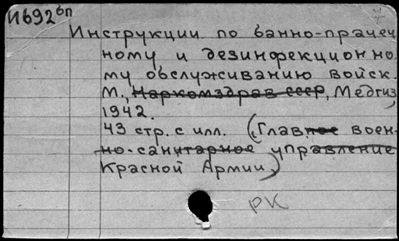 И692бп
Инструкции по банно-прачеч
ному и дезинфекционно
му обслуживанию войск.
М., Наркомздрав СССР, Медгиз
1942.
43 стр. с илл. (Главное воен-
но-санитарное управление
Красной Армии)
РК